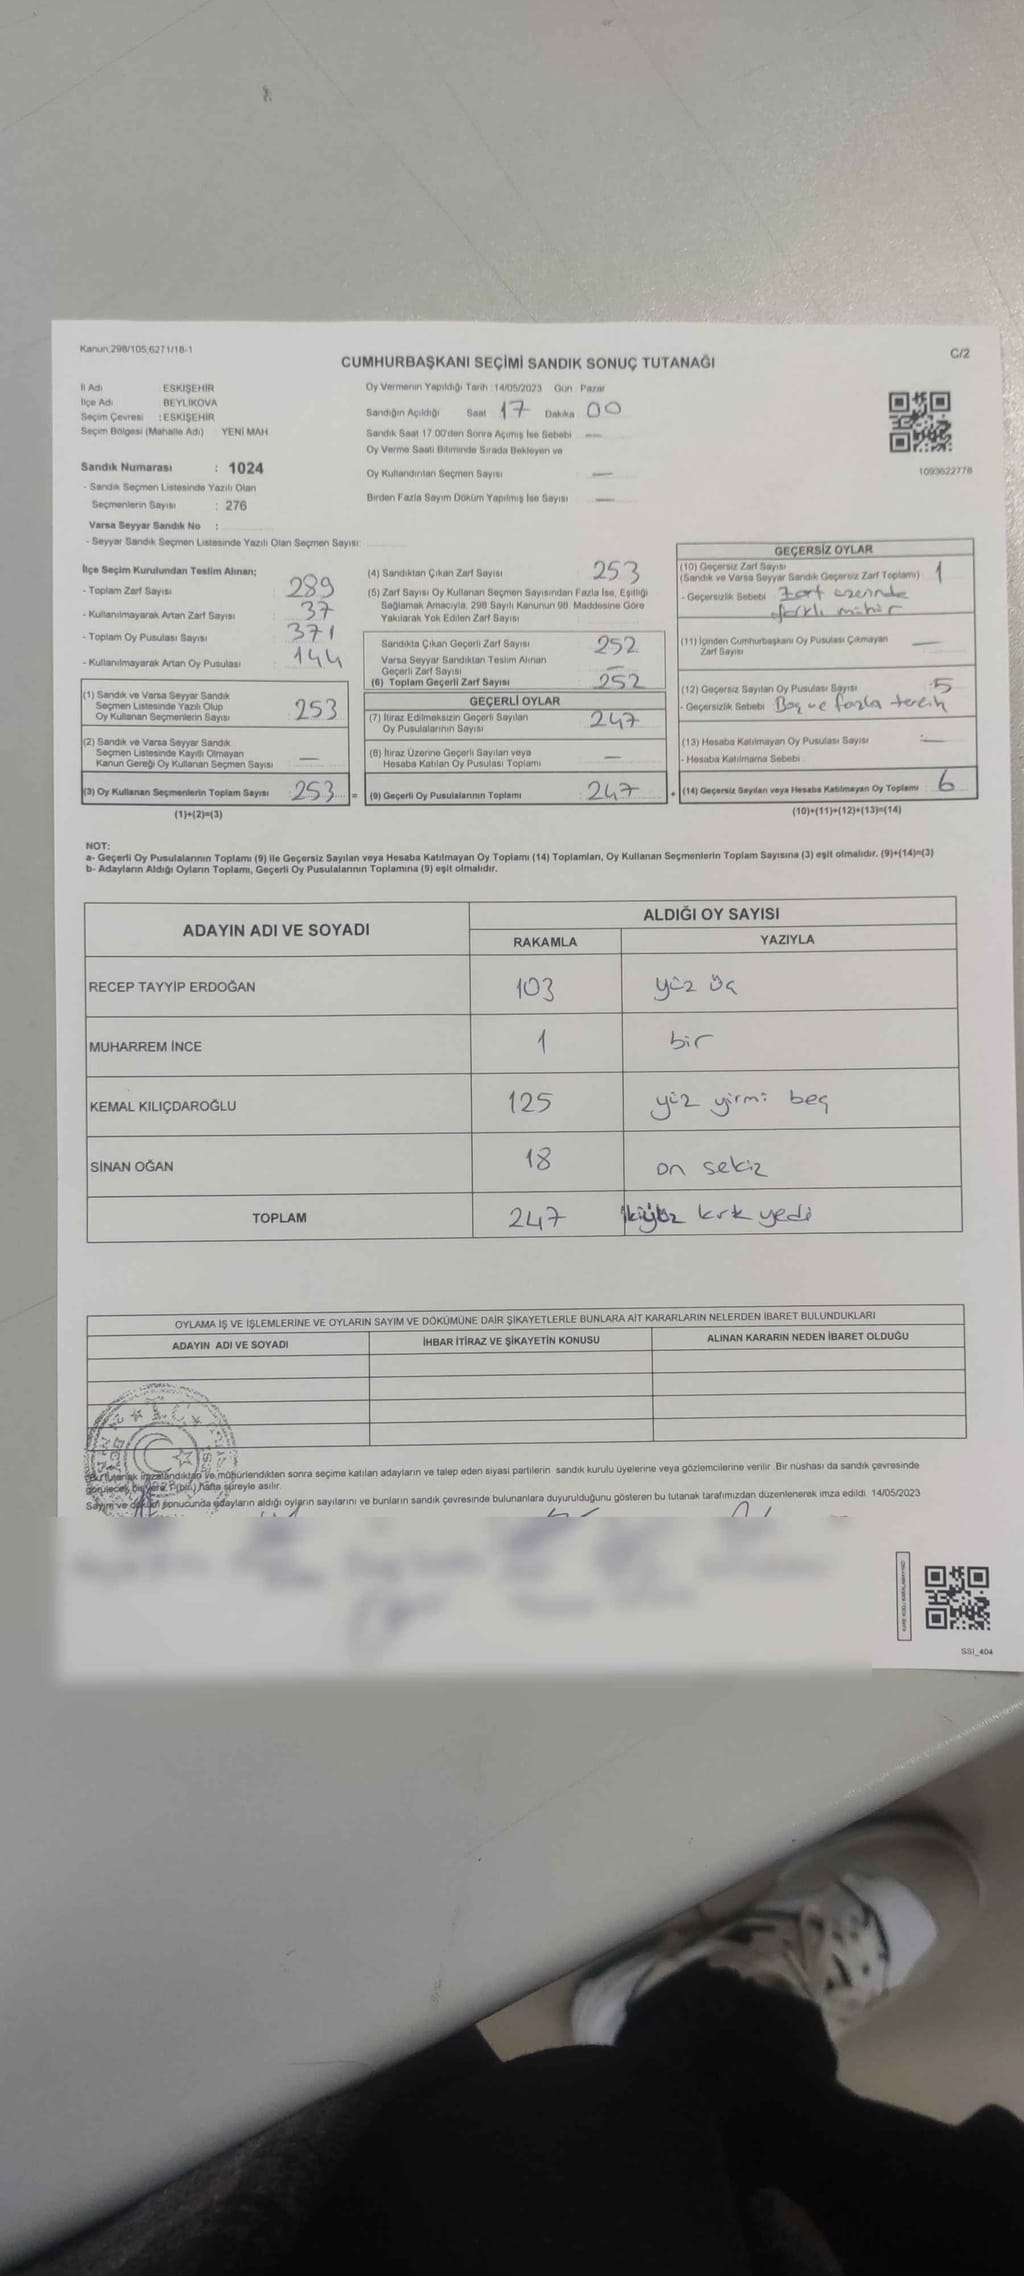 Kanun:298/105,6271/18-1
C/2
CUMHURBAŞKANI SEÇİMİ SANDIK SONUÇ TUTANAĞI
İl Adı ESKİŞEHİR
İlçe Adı BEYLİKOVA
Seçim Çevresi : ESKİŞEHİR
Seçim Bölgesi (Mahalle Adı) YENİ MAH.
Sandık Numarası : 1024
- Sandık Seçmen Listesinde Yazılı Olan
Seçmenlerin Sayısı : 276
Varsa Seyyar Sandık No :
- Seyyar Sandık Seçmen Listesinde Yazılı Olan Seçmen Sayısı:
Oy Vermenin Yapıldığı Tarih :14/05/2023 Gün Pazar
Sandığın Açıldığı Saat 17 Dakika 00
Sandık Saat 17.00'den Sonra Açımış İse Sebebi —
Oy Verme Saati Bitiminde Sırada Bekleyen ve
Oy Kullandırılan Seçmen Sayısı —
Birden Fazla Sayım Döküm Yapılmış İse Sayısı —
1093622778
İlçe Seçim Kurulundan Teslim Alınan;
- Toplam Zarf Sayısı 289
- Kullanılmayarak Artan Zarf Sayısı 37
- Toplam Oy Pusulası Sayısı 371
- Kullanılmayarak Artan Oy Pusulası 144
(1) Sandık ve Varsa Seyyar Sandık
Seçmen Listesinde Yazılı Olup
Oy Kullanan Seçmenlerin Sayısı 253
(2) Sandık ve Varsa Seyyar Sandık
Seçmen Listesinde Kayıtlı Olmayan
Kanun Gereği Oy Kullanan Seçmen Sayısı —
(3) Oy Kullanan Seçmenlerin Toplam Sayısı : 253 =
(1)+(2)=(3)
(4) Sandıktan Çıkan Zarf Sayısı 253
(5) Zarf Sayısı Oy Kullanan Seçmen Sayısından Fazla İse, Eşitliği
Sağlamak Amacıyla, 298 Sayılı Kanunun 98. Maddesine Göre
Yakılarak Yok Edilen Zarf Sayısı
Sandıkta Çıkan Geçerli Zarf Sayısı 252
Varsa Seyyar Sandıktan Teslim Alınan
Geçerli Zarf Sayısı —
(6) Toplam Geçerli Zarf Sayısı 252
GEÇERLİ OYLAR
(7) İtiraz Edilmeksizin Geçerli Sayılan
Oy Pusulalarının Sayısı 247
(8) İtiraz Üzerine Geçerli Sayılan veya
Hesaba Katılan Oy Pusulası Toplamı —
(9) Geçerli Oy Pusulalarının Toplamı : 247 +
GEÇERSİZ OYLAR
(10) Geçersiz Zarf Sayısı
(Sandık ve Varsa Seyyar Sandık Geçersiz Zarf Toplamı) 1
- Geçersizlik Sebebi Zarf üzerinde
farklı mühür
(11) İçinden Cumhurbaşkanı Oy Pusulası Çıkmayan
Zarf Sayısı —
(12) Geçersiz Sayılan Oy Pusulası Sayısı 5
- Geçersizlik Sebebi Boş ve fazla tercih
(13) Hesaba Katılmayan Oy Pusulası Sayısı : —
- Hesaba Katılmama Sebebi
(14) Geçersiz Sayılan veya Hesaba Katılmayan Oy Toplamı : 6
(10)+(11)+(12)+(13)=(14)
NOT:
a- Geçerli Oy Pusulalarının Toplamı (9) ile Geçersiz Sayılan veya Hesaba Katılmayan Oy Toplamı (14) Toplamları, Oy Kullanan Seçmenlerin Toplam Sayısına (3) eşit olmalıdır. (9)+(14)=(3)
b- Adayların Aldığı Oyların Toplamı, Geçerli Oy Pusulalarının Toplamına (9) eşit olmalıdır.
ADAYIN ADI VE SOYADI ALDIĞI OY SAYISI
RAKAMLA YAZIYLA
RECEP TAYYİP ERDOĞAN 103 yüz üç
MUHARREM İNCE 1 bir
KEMAL KILIÇDAROĞLU 125 yüz yirmi beş
SİNAN OĞAN 18 on sekiz
TOPLAM 247 ikiyüz kırk yedi
OYLAMA İŞ VE İŞLEMLERİNE VE OYLARIN SAYIM VE DÖKÜMÜNE DAİR ŞİKAYETLERLE BUNLARA AİT KARARLARIN NELERDEN İBARET BULUNDUKLARI
ADAYIN ADI VE SOYADI İHBAR İTİRAZ VE ŞİKAYETİN KONUSU ALINAN KARARIN NEDEN İBARET OLDUĞU
Bu tutanak imzalandıktan ve mühürlendikten sonra seçime katılan adayların ve talep eden siyasi partilerin sandık kurulu üyelerine veya gözlemcilerine verilir. Bir nüshası da sandık çevresinde
görülecek bir yere (bir) hafta süreyle asılır.
Sayım ve döküm sonucunda adayların aldığı oyların sayılarını ve bunların sandık çevresinde bulunanlara duyurulduğunu gösteren bu tutanak tarafımızdan düzenlenerek imza edildi. 14/05/2023
SSI_404